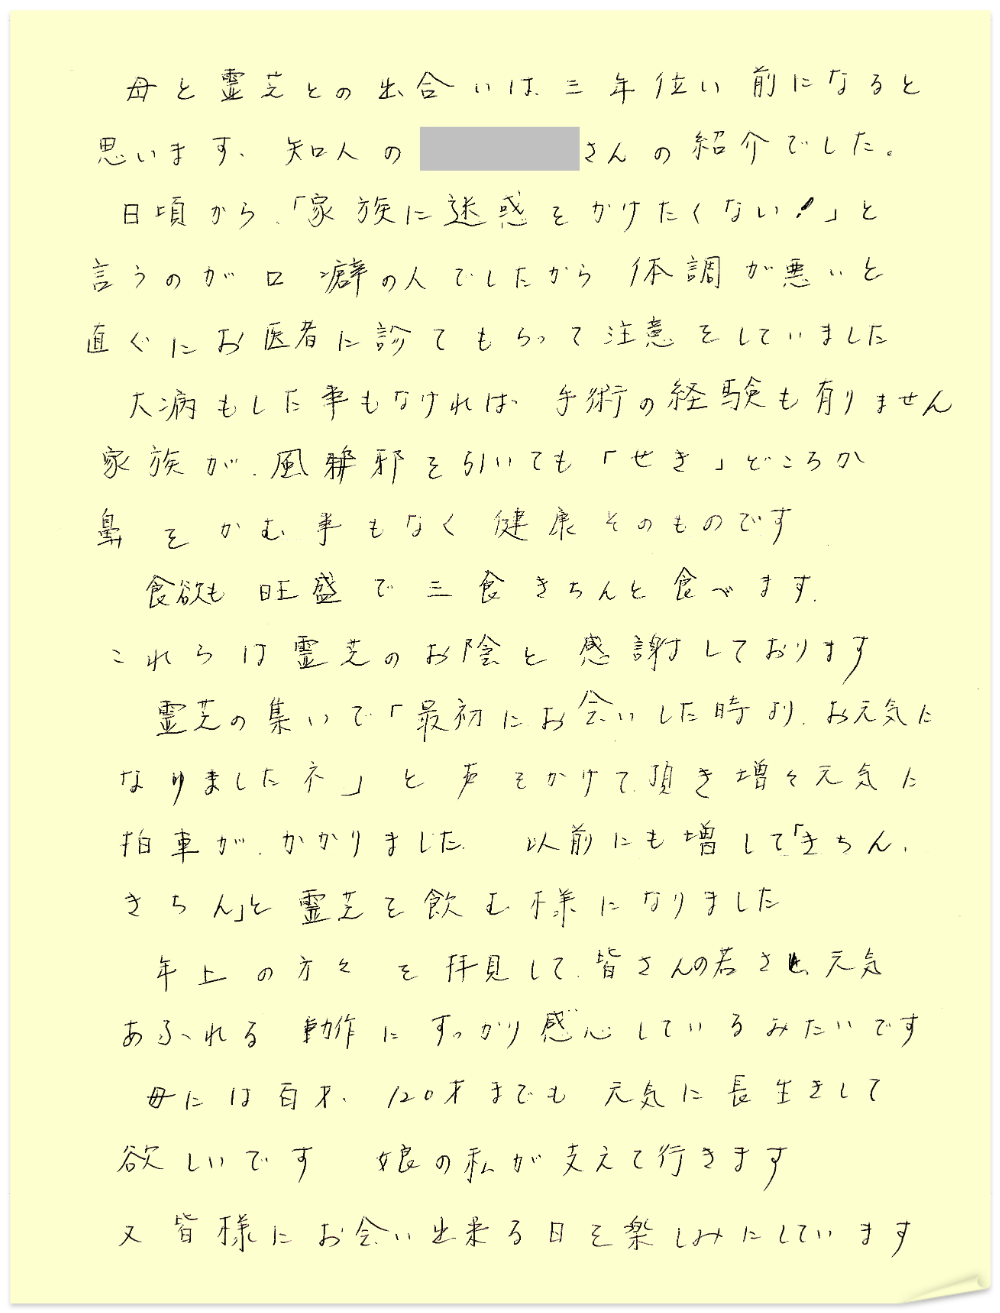 母と霊芝との出合いは三年位い前になると
思います、知人の さんの紹介でした。
日頃から、「家族に迷惑をかけたくない！」と
言うのが口癖の人でしたから体調が悪いと
直ぐにお医者に診てもらって注意をしていました
大病もした事もなければ、手術の経験も有りません
家族が、風邪を引いても「せき」どころか
鼻をかむ事もなく健康そのものです
食欲も旺盛で三食きちんと食べます、
これらは霊芝のお陰と感謝しております
霊芝の集いで「最初にお会いした時より、お元気に
なりましたネ」と声をかけて頂き増々元気に
拍車が、かかりました 以前にも増して「きちん、
きちん」と霊芝を飲む様になりました
年上の方々を拝見して、皆さんの若さと、元気
あふれる動作にすっかり感心しているみたいです
母には百才、120才までも元気に長生きして
欲しいです 娘の私が支えて行きます
又皆様にお会い出来る日を楽しみにしています